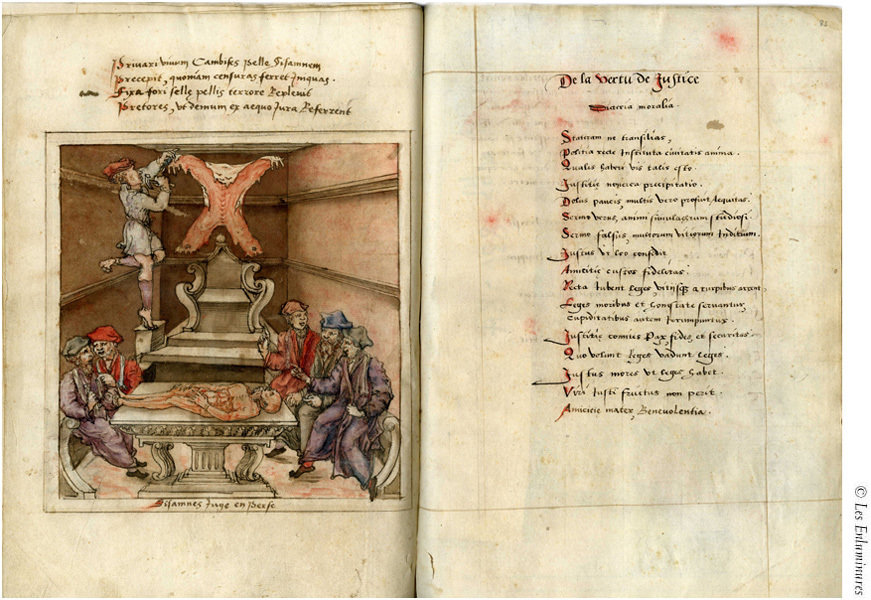 Privari vivum Cambises pelle Sisamnem
Precepit, quoniam censuras ferret Iniquas.
Fixa fori selle pellis terrore Replevit
Pretores, ut demum ex aequo Jura Referrent
Sisamnes Juge en Perse
82
De la Vertu de Justice
Diacria moralia.
Stateram ne transilias,
Politia recte Instituta civitatis anima.
Qualis haberi vis talis esto.
Justitie noverca precipitatio.
Dolus paucis, multis vero prosiut, equitas.
Sermo verus, animi simulachrum studiosi
Sermo falsus, multorum vitiorum Inditium.
Justus ut leo confidit
Amicitie custos fidelitas.
Recta Iubent leges, a turpibus
Leges moribus et honestate servantur,
Cupiditatibus autem Irrumpuntur.
Justitie comites Pax, fides, et securitas
Quo volunt leges vadunt leges.
Justus mores ut leges habet.
Viri Iusti fructus non perit.
Amicicie mater, Benevolentia.
© Les Enluminures